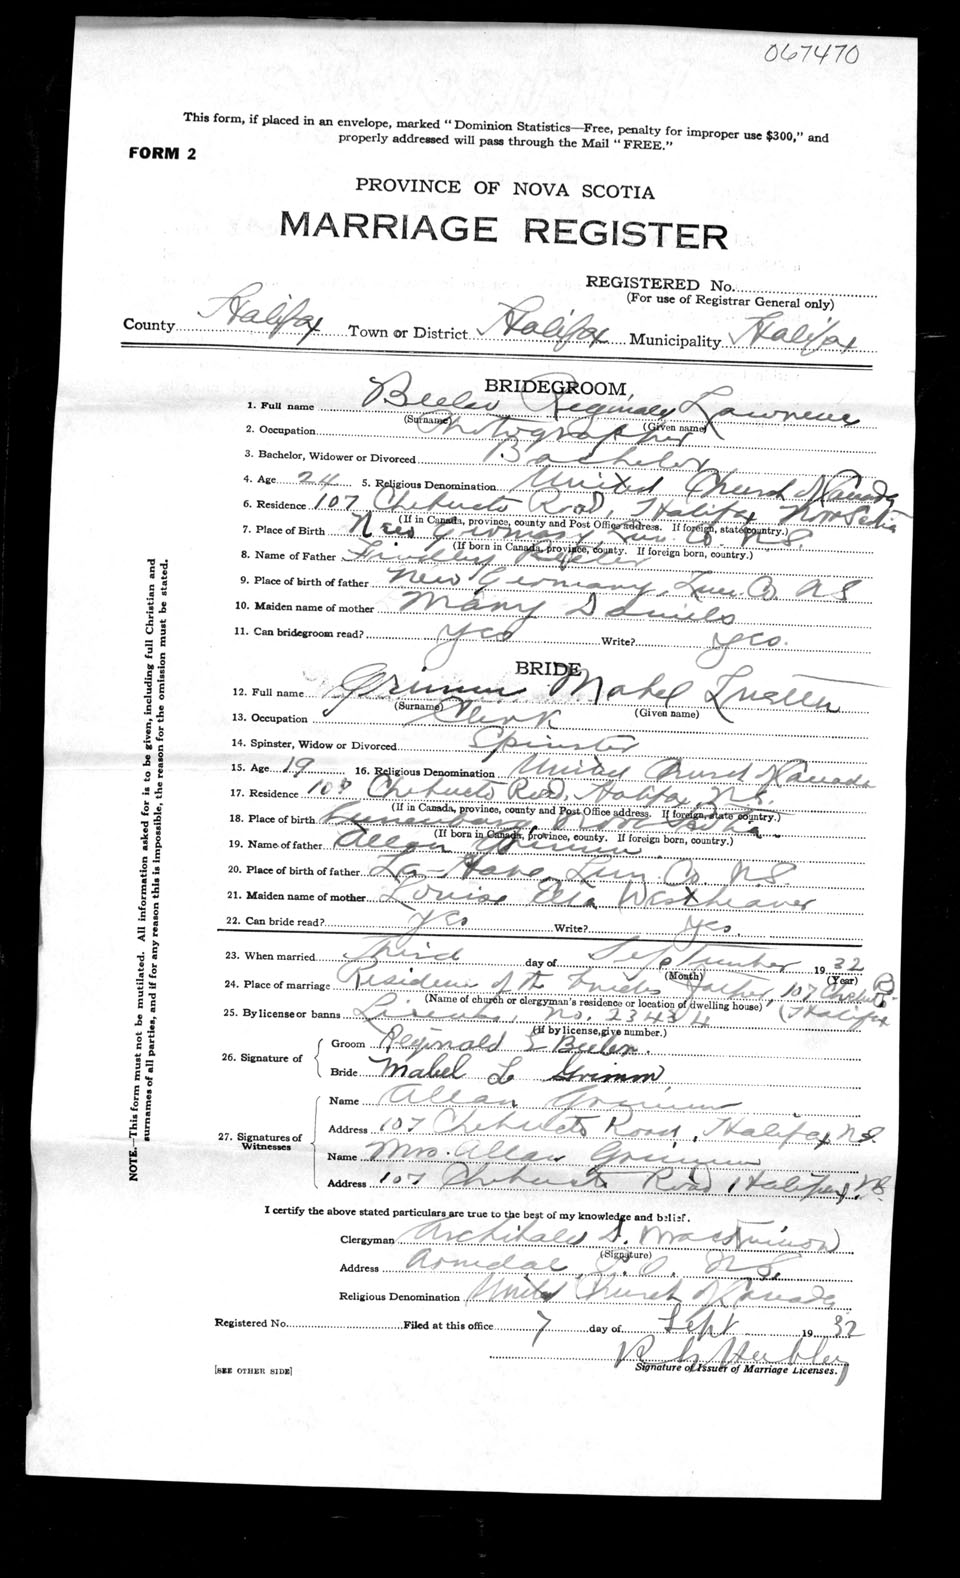 067470
This form, if placed in an envelope, marked "Dominion Statistics—Free, penalty for improper use $300," and
properly addressed will pass through the Mail "FREE."
FORM 2
PROVINCE OF NOVA SCOTIA
MARRIAGE REGISTER
REGISTERED No.
(For use of Registrar General only)
County Halifax Town or District Halifax Municipality Halifax
BRIDEGROOM,
1. Full name Beeler Reginald Lawrence
(Surname) (Given name)
2. Occupation Photographer
3. Bachelor, Widower or Divorced Bachelor
4. Age 24 5. Religious Denomination United Church of Canada
6. Residence 107 Chebucto Road, Halifax Nova Scotia
(If in Canada, province, county and Post Office address. If foreign, state country.)
7. Place of Birth New Germany, Lun. Co. N.S.
(If born in Canada, province, county. If foreign born, country.)
8. Name of Father Beeler
9. Place of birth of father New Germany, Lun. Co. N S
10. Maiden name of mother Mary Daniels
11. Can bridegroom read? yes Write? yes.
BRIDE
12. Full name Grimm Mabel
(Surname) (Given name)
13. Occupation Clerk
14. Spinster, Widow or Divorced Spinster
15. Age 19 16. Religious Denomination United Church of Canada
17. Residence 107 Chebucto Road, Halifax, N.S.
(If in Canada, province, county and Post Office address. If foreign, state country.)
18. Place of birth Lunenburg, Nova Scotia
(If born in Canada, province, county. If foreign born, country.)
19. Name of father Allan Grimm
20. Place of birth of father La-Have, Lun. Co. N.S.
21. Maiden name of mother Louise Etta Westheaver
22. Can bride read? yes Write? yes.
23. When married third day of September 1932
(Month) (Year)
24. Place of marriage Residence of the brides father, 107 Chebucto R
(Name of church or clergyman's residence or location of dwelling house) (Halifax
25. By license or banns License, No. 23434
(If by license, give number.)
26. Signature of
Groom Reginald L Beeler.
Bride Mabel L Grimm
27. Signatures of Witnesses
Name Allan Grimm
Address 107 Chebucto Road, Halifax N.S.
Name Mrs. Allan Grimm
Address 107 Chebucto Road, Halifax, N.S.
I certify the above stated particulars are true to the best of my knowledge and belief.
Clergyman Archibald
(Signature)
Address Armdale, P.O. N.S.
Religious Denomination United Church of Canada
Registered No. Filed at this office 7 day of Sept 1932
Signature of Issuer of Marriage Licenses.
[SEE OTHER SIDE]
NOTE.—This form must not be mutilated. All information asked for is to be given, including full Christian and
surnames of all parties, and if for any reason this is impossible, the reason for the omission must be stated.